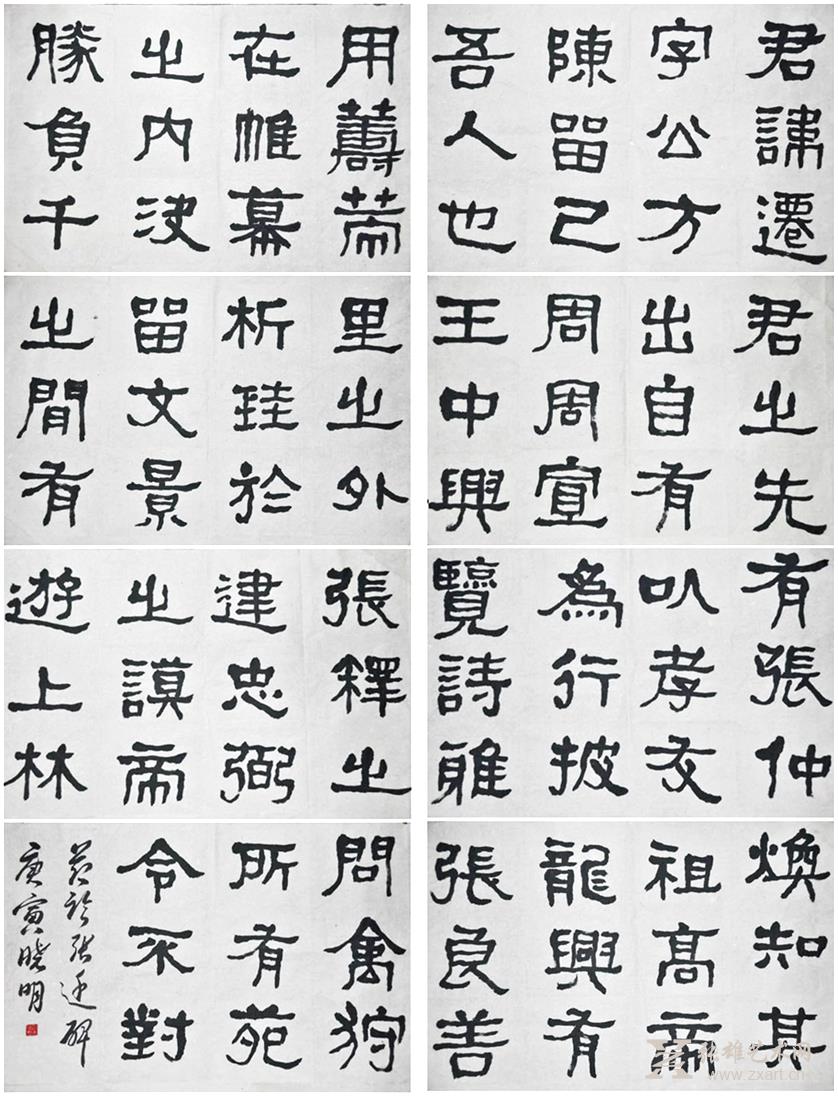 君諱遷
字公方
陳留己
吾人也
君之先
出自有
周周宣
王中興
有張仲
以孝友
為行披
覽詩雅
煥知其
祖高帝
龍興有
張良善
用籌策
在帷幕
之内決
勝負千
里之外
析珪於
留文景
之間有
張釋之
建忠弼
之謨帝
遊上林
問禽狩
所有苑
令不對
节臨张迁碑
庚寅晓明
张雄艺术网
www.zxart.cn